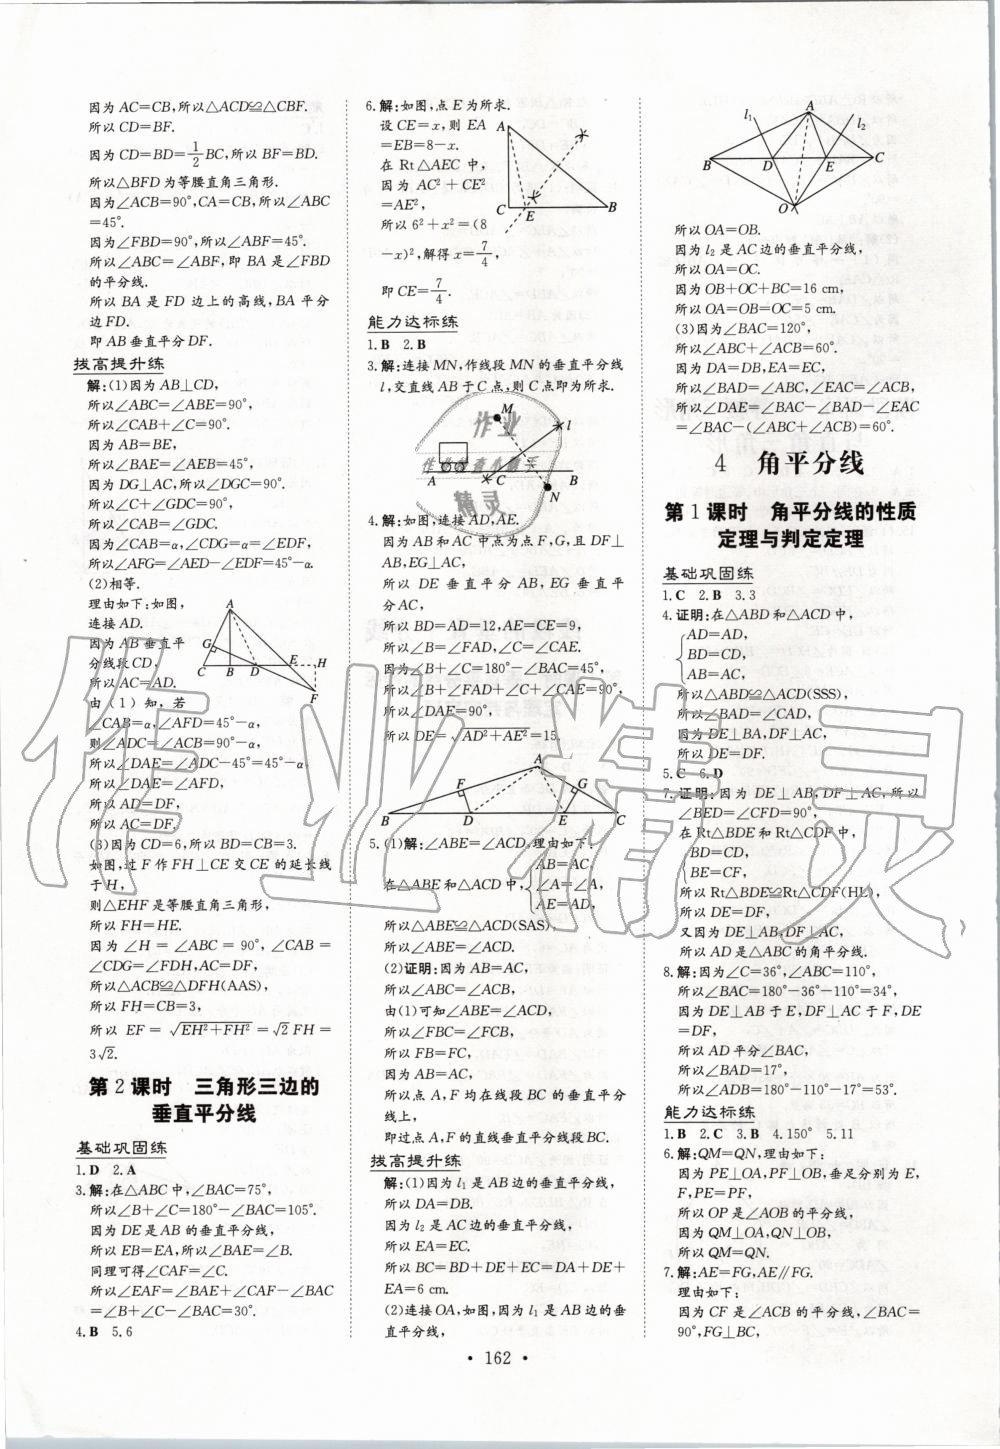 因为AC=CB,所以△ACD≌△CBF.
所以CD=BF.
因为CD=BD=1/2BC,所以BF=BD.
所以△BFD为等腰直角三角形.
因为∠ACB=90°,CA=CB,所以∠ABC
=45°.
因为∠FBD=90°,所以∠ABF=45°.
所以∠ABC=∠ABF,即BA是∠FBD
的平分线.
所以BA是FD边上的高线,BA平分
边FD.
即AB垂直平分DF.
拔高提升练
解:(1)因为AB⊥CD,
所以∠ABC=∠ABE=90°,
所以∠CAB+∠C=90°.
因为AB=BE,
所以∠BAE=∠AEB=45°.
因为DG⊥AC,所以∠DGC=90°,
所以∠C+∠GDC=90°,
所以∠CAB=∠GDC.
因为∠CAB=α,∠CDG=α=∠EDF,
所以∠AFG=∠AED-∠EDF=45°-α.
(2)相等.
理由如下:如图,
连接AD.
因为AB垂直平
分线段CD,
所以AC=AD.
由(1)知,若
∠CAB=α,∠AFD=45°-α,
则∠ADC=∠ACB=90°-α,
所以∠DAE=∠ADC-45°=45°-α,
所以∠DAE=∠AFD,
所以AD=DF,
所以AC=DF.
(3)因为CD=6,所以BD=CB=3.
如图,过F作FH⊥CE交CE的延长线
于H,
则△EHF是等腰直角三角形,
所以FH=HE.
因为∠H=∠ABC=90°,∠CAB=
∠CDG=∠FDH,AC=DF,
所以△ACB≌△DFH(AAS),
所以FH=CB=3,
所以EF=√(EH²+FH²)=√2FH=
3√2.
第2课时 三角形三边的
垂直平分线
基础巩固练
1.D 2.A
3.解:在△ABC中,∠BAC=75°,
所以∠B+∠C=180°-∠BAC=105°.
因为DE是AB的垂直平分线,
所以EB=EA,所以∠BAE=∠B.
同理可得∠CAF=∠C.
所以∠EAF=∠BAE+∠CAF-∠BAC
=∠B+∠C-∠BAC=30°.
4.B 5.6
A
G
C B D E H
F
6.解:如图,点E为所求.
设CE=x,则EA
=EB=8-x.
在Rt△AEC中,
因为AC²+CE²
=AE²,
所以6²+x²=(8
-x)²,解得x=7/4,
即CE=7/4.
A
C E B
能力达标练
1.B 2.B
3.解:连接MN,作线段MN的垂直平分线
l,交直线AB于C点,则C点即为所求.
M
l
A C B
N
4.解:如图,连接AD,AE.
因为AB和AC中点为点F,G,且DF⊥
AB,EG⊥AC,
所以DE垂直平分AB,EG垂直平
分AC,
所以BD=AD=12,AE=CE=9,
所以∠B=∠FAD,∠C=∠CAE.
因为∠B+∠C=180°-∠BAC=45°,
所以∠B+∠FAD+∠C+∠CAE=90°,
所以∠DAE=90°,
所以DE=√(AD²+AE²)=15.
A
F G
B D E C
5.(1)解:∠ABE=∠ACD,理由如下:
AB=AC,
在△ABE和△ACD中,∠A=∠A,
AE=AD,
所以△ABE≌△ACD(SAS),
所以∠ABE=∠ACD.
(2)证明:因为AB=AC,
所以∠ABC=∠ACB,
由(1)可知∠ABE=∠ACD,
所以∠FBC=∠FCB,
所以FB=FC,
因为AB=AC,
所以点A,F均在线段BC的垂直平分
线上,
即过点A,F的直线垂直平分线段BC.
拔高提升练
解:(1)因为l₁是AB边的垂直平分线,
所以DA=DB.
因为l₂是AC边的垂直平分线,
所以EA=EC.
所以BC=BD+DE+EC=DA+DE+
EA=6 cm.
(2)连接OA,如图,因为l₁是AB边的垂
直平分线,
A
l₁ l₂
B D E C
O
所以OA=OB.
因为l₂是AC边的垂直平分线,
所以OA=OC.
因为OB+OC+BC=16 cm,
所以OA=OB=OC=5 cm.
(3)因为∠BAC=120°,
所以∠ABC+∠ACB=60°.
因为DA=DB,EA=EC,
所以∠BAD=∠ABC,∠EAC=∠ACB,
所以∠DAE=∠BAC-∠BAD-∠EAC
=∠BAC-(∠ABC+∠ACB)=60°.
4 角平分线
第1课时 角平分线的性质
定理与判定定理
基础巩固练
1.C 2.B 3.3
4.证明:在△ABD和△ACD中,
AD=AD,
BD=CD,
AB=AC,
所以△ABD≌△ACD(SSS),
所以∠BAD=∠CAD,
因为DE⊥BA,DF⊥AC,
所以DE=DF.
5.C 6.D
7.证明:因为DE⊥AB,DF⊥AC,所以
∠BED=∠CFD=90°,
在Rt△BDE和Rt△CDF中,
BD=CD,
BE=CF,
所以Rt△BDE≌Rt△CDF(HL),
所以DE=DF,
又因为DE⊥AB,DF⊥AC,
所以AD是△ABC的角平分线.
8.解:因为∠C=36°,∠ABC=110°,
所以∠BAC=180°-36°-110°=34°,
因为DE⊥AB于E,DF⊥AC于F,DE
=DF,
所以AD平分∠BAC,
所以∠BAD=17°,
所以∠ADB=180°-110°-17°=53°.
能力达标练
1.B 2.C 3.B 4.150° 5.11
6.解:QM=QN,理由如下:
因为PE⊥OA,PF⊥OB,垂足分别为E,
F,PE=PF,
所以OP是∠AOB的平分线,
因为QM⊥OA,QN⊥OB,
所以QM=QN.
7.解:AE=FG,AE∥FG.
理由如下:
因为CF是∠ACB的平分线,∠BAC=
90°,FG⊥BC,
• 162 •
作业精灵
作业
作业检查小能手
精灵